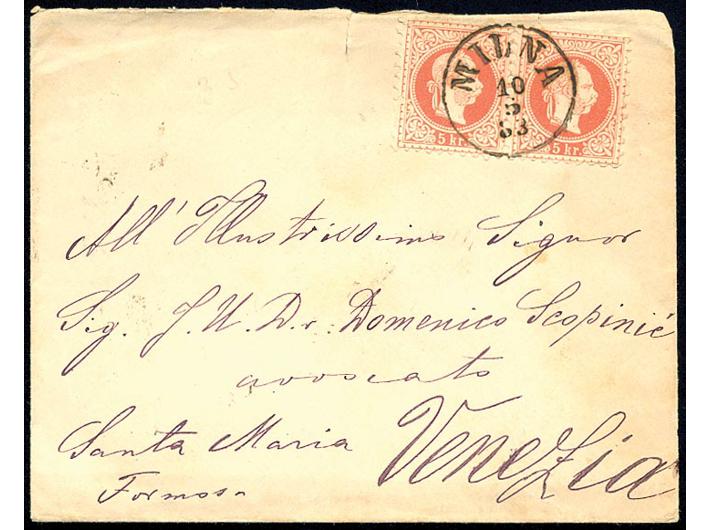 MILNA
10
5
83
5 kr. 5 kr.
All' Illustrissimo Signor
Sig. J. U. D.r Domenico Scopinić
avvocato
Santa Maria Venezia
Formosa